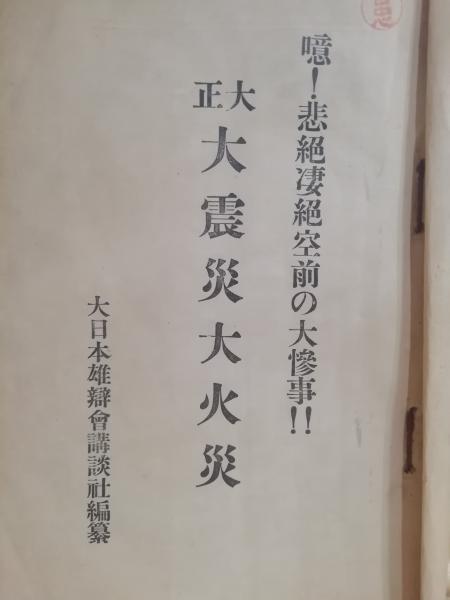 噫！悲絕凄絕空前の大慘事！！
大正
大震災大火災
大日本雄辯會講談社編纂